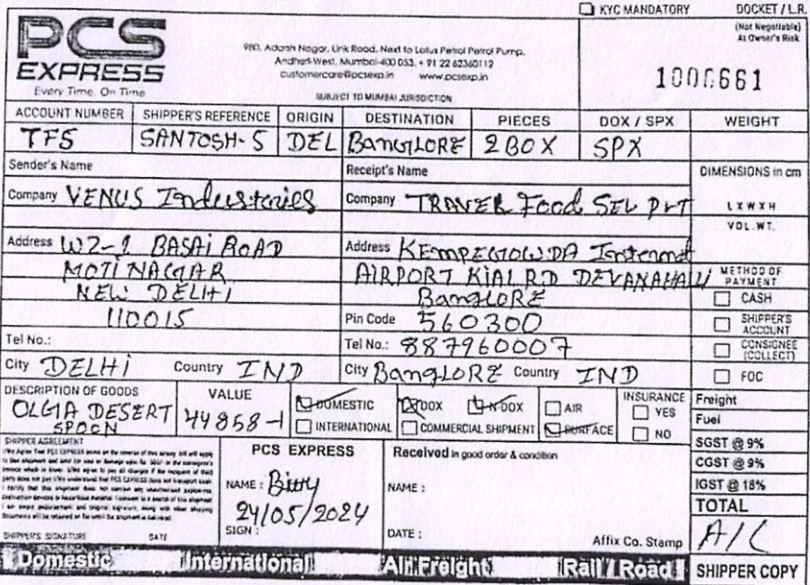 KYC MANDATORY
DOCKET / L.R.
(Not Negotiable)
At Owner's Risk
PCS
EXPRESS
Every Time. On Time
980, Adarsh Nagar, Link Road, Next to Lotus Petrol Petrol Pump,
Andheri-West, Mumbai-400 053. + 91 22 62360112
customercare@pcsexp.in www.pcsexp.in
SUBJECT TO MUMBAI JURISDICTION
1000661
ACCOUNT NUMBER SHIPPER'S REFERENCE ORIGIN DESTINATION PIECES DOX / SPX WEIGHT
TFS SANTOSH-S DEL BANGLORE 2 BOX SPX
Sender's Name
Company VENUS Industries
Address WZ-1 BASAI ROAD
MOTI NAGAR
NEW DELHI
110015
Tel No.:
City DELHI Country IND
Receipt's Name
Company TRAVER Food SEL PVT
Address KEMPEGOWDA Internat
AIRPORT KIAL RD DEVANAHALLI
BangLORE
Pin Code 560300
Tel No.: 887960007
City BangLORE Country IND
DIMENSIONS in cm
L X W X H
VOL. WT.
METHOD OF PAYMENT
CASH
SHIPPER'S ACCOUNT
CONSIGNEE (COLLECT)
FOC
DESCRIPTION OF GOODS
OLGIA DESERT
SPOON
VALUE
44858-1
DOMESTIC DOX N-DOX AIR
INTERNATIONAL COMMERCIAL SHIPMENT SURFACE
INSURANCE
YES
NO
Freight
Fuel
SGST @ 9%
CGST @ 9%
IGST @ 18%
TOTAL
A/C
SHIPPER AGREEMENT
SHIPPER'S SIGNATURE DATE
PCS EXPRESS
NAME :
24/05/2024
SIGN :
Received in good order & condition
NAME :
DATE :
Affix Co. Stamp
Domestic International Air Freight Rail / Road SHIPPER COPY